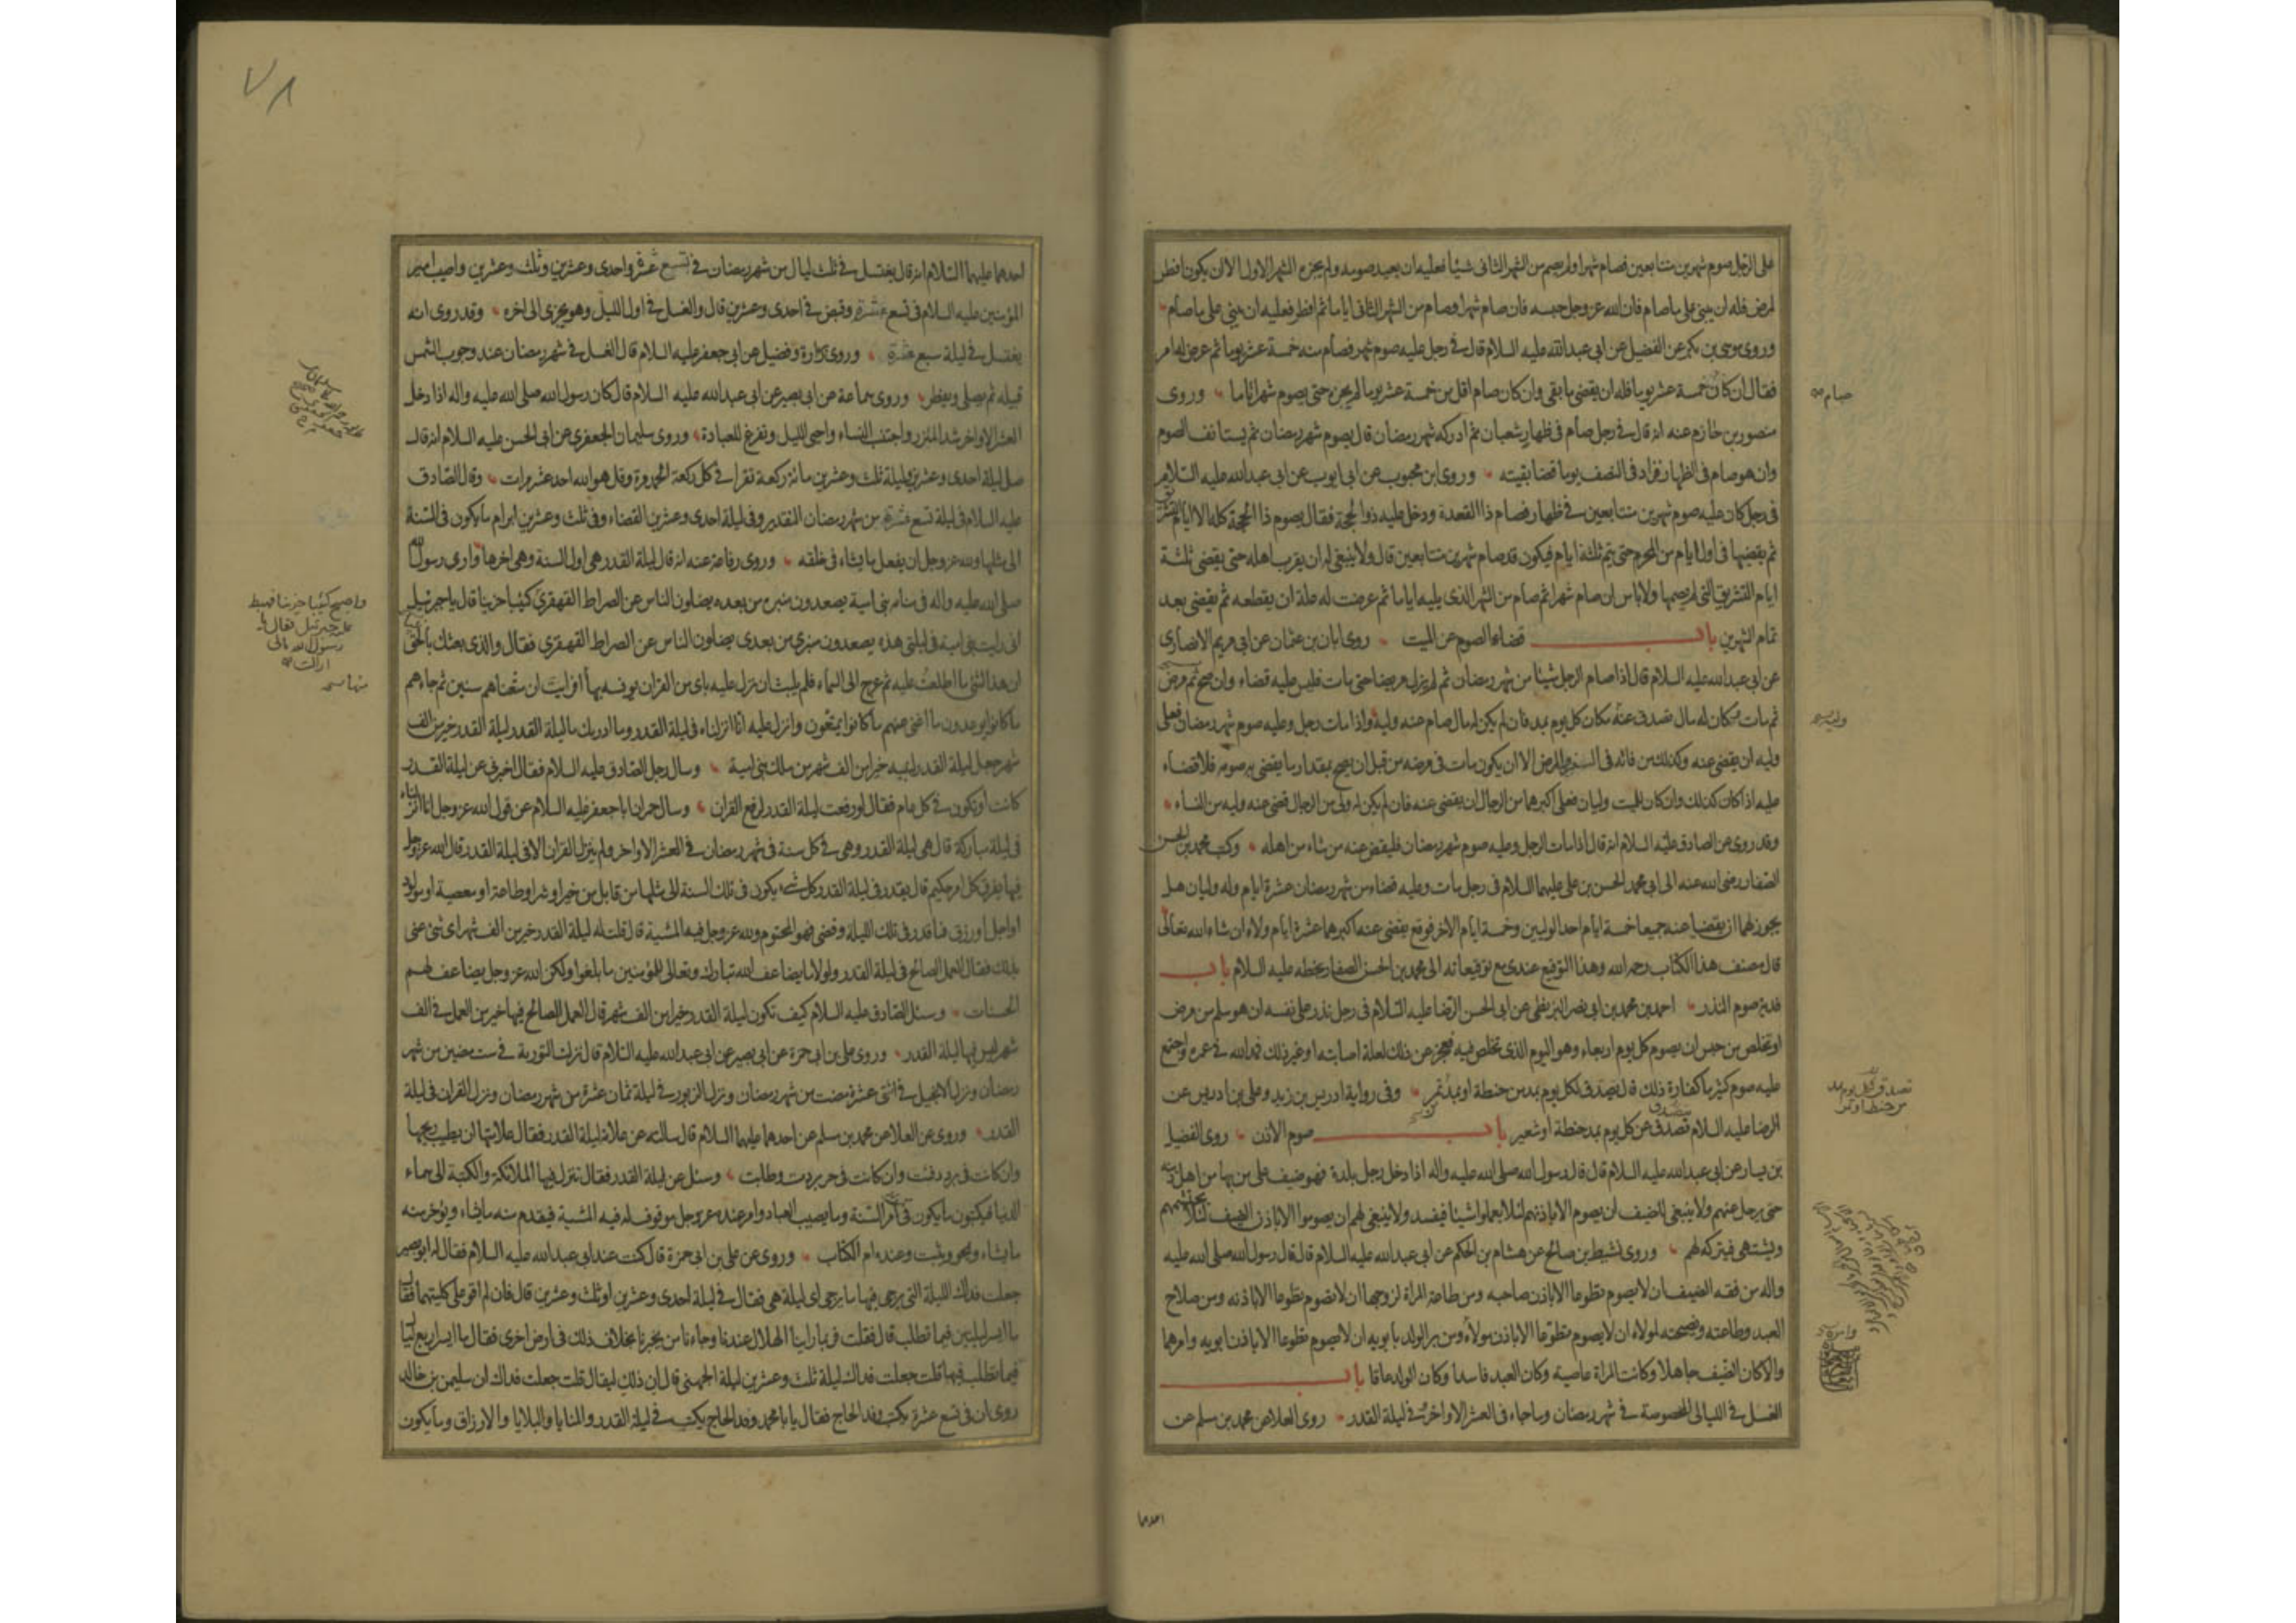 على الرجل صوم شهرين متتابعين فصام شهرا ولم يصم من الشهر الثانى شيئا فعليه ان يعيد صومه ولم يجزه الشهر الاول الا ان يكون افطر
لمرض فله ان يبنى على ما صام فان الله عز وجل حبسه فان صام شهرا وصام من الشهر الثانى اياما ثم افطر فعليه ان يبنى على ما صام
وروى موسى بن بكر عن الفضيل عن ابى عبد الله عليه السلام قال فى رجل عليه صوم شهر فصام منه خمسة عشر يوما ثم عرض له امر
فقال ان كان خمسة عشر يوما فله ان يقضى ما بقى وان كان صام اقل من خمسة عشر يوما لم يجز حتى يصوم شهرا تاما وروى
صام
منصور بن حازم عنه انه قال فى رجل صام فى ظهار شعبان ثم ادركه شهر رمضان قال يصوم شهر رمضان ثم يستانف الصوم
وان هو صام فى الظهار فزاد فى النصف يوما قضا بقيته وروى ابن محبوب عن ابى ايوب عن ابى عبد الله عليه السلام
فى رجل كان عليه صوم شهرين متتابعين فى ظهار فصام ذا القعدة ودخل عليه ذو الحجة فقال يصوم ذا الحجة كله الا ايام التشريق
ثم يقضيها فى اول ايام من المحرم حتى يتم ثلثة ايام فيكون قد صام شهرين متتابعين قال ولا ينبغى له ان يقرب اهله حتى يقضى ثلثة
ايام التشريق التى لم يصمها ولا باس ان صام شهرا ثم صام من الشهر الذى يليه اياما ثم عرضت له علة ان يقطعه ثم يقضى بعد
تمام الشهرين باب قضاء الصوم عن الميت روى ابان بن عثمان عن ابى مريم الانصارى
عن ابى عبد الله عليه السلام قال اذا صام الرجل شيئا من شهر رمضان ثم لم يزل مريضا حتى مات فليس عليه قضاء وان صح ثم مرض
ثم مات وكان له مال تصدق عنه مكان كل يوم بمد فان لم يكن له مال صام عنه وليه واذا مات رجل وعليه صوم شهر رمضان فعلى
وليه ان يقضى عنه وكذلك من فاته فى السفر او المرض الا ان يكون مات فى مرضه من قبل ان يصح بمقدار ما يقضى به صومه فلا قضاء
عليه اذا كان كذلك وان كان للميت وليان فعلى اكبرهما من الرجال ان يقضى عنه فان لم يكن له ولى من الرجال قضى عنه وليه من النساء
وقد روى عن الصادق عليه السلام انه قال اذا مات الرجل وعليه صوم شهر رمضان فليقض عنه من شاء من اهله وكتب محمد بن الحسن
الصفار رضى الله عنه الى ابى محمد الحسن بن على عليهما السلام فى رجل مات وعليه قضاء من شهر رمضان عشرة ايام وله وليان هل
يجوز لهما ان يقضيا عنه جميعا خمسة ايام احد الوليين وخمسة ايام الاخر فوقع يقضى عنه اكبرهما عشرة ايام ولاء ان شاء الله تعالى
قال مصنف هذا الكتاب رحمه الله وهذا التوقيع عندى مع توقيعاته الى محمد بن الحسن الصفار بخطه عليه السلام باب
فدية صوم النذر احمد بن محمد بن ابى نصر البزنطى عن ابى الحسن الرضا عليه السلام فى رجل نذر على نفسه ان هو سلم من مرض
او تخلص من حبس ان يصوم كل يوم اربعاء وهو اليوم الذى تخلص فيه فعجز عن ذلك لعلة اصابته او غير ذلك فمد الله فى عمره واجتمع
عليه صوم كثير ما كفارة ذلك قال يتصدق لكل يوم بمد من حنطة او بمد تمر وفى رواية ادريس بن زيد وعلى بن ادريس عن
تصدق لكل يوم مد
من حنطة او تمر
الرضا عليه السلام تصدق عن كل يوم بمد حنطة او شعير باب صوم الاذن روى الفضيل
بن يسار عن ابى عبد الله عليه السلام قال قال رسول الله صلى الله عليه واله اذا دخل رجل بلدة فهو ضيف على من بها من اهل دينه
حتى يرحل عنهم ولا ينبغى للضيف ان يصوم الا باذنهم لئلا يعملوا شيئا فيفسد ولا ينبغى لهم ان يصوموا الا باذن الضيف لئلا يحتشمهم
ويشتهى فيتركه لهم وروى نشيط بن صالح عن هشام بن الحكم عن ابى عبد الله عليه السلام قال قال رسول الله صلى الله عليه
واله من فقه الضيف ان لا يصوم تطوعا الا باذن صاحبه ومن طاعة المراة لزوجها ان لا تصوم تطوعا الا باذنه ومن صلاح
العبد وطاعته ونصيحته لمولاه ان لا يصوم تطوعا الا باذن مولاه ومن بر الولد بابويه ان لا يصوم تطوعا الا باذن ابويه وامرهما
والا كان الضيف جاهلا وكانت المراة عاصية وكان العبد فاسدا وكان الولد عاقا باب
الغسل فى الليالى المخصوصة فى شهر رمضان وما جاء فى العشر الاواخر فى ليلة القدر روى العلا عن محمد بن مسلم عن
احدهما
٧٨
احدهما عليهما السلام انه قال يغتسل فى ثلث ليال من شهر رمضان فى تسع عشرة واحدى وعشرين وثلث وعشرين واصيب امير
المؤمنين عليه السلام فى تسع عشرة وقبض فى احدى وعشرين قال والغسل فى اول الليل وهو يجزى الى اخره وقد روى انه
يغتسل فى ليلة سبع عشرة وروى زرارة وفضيل عن ابى جعفر عليه السلام قال الغسل فى شهر رمضان عند وجوب الشمس
قبيله ثم يصلى ويفطر وروى سماعة عن ابى بصير عن ابى عبد الله عليه السلام قال كان رسول الله صلى الله عليه واله اذا دخل
العشر الاواخر شد المئزر واجتنب النساء واحيى الليل وتفرغ للعبادة وروى سليمان الجعفرى عن ابى الحسن عليه السلام انه قال
صل ليلة احدى وعشرين وليلة ثلث وعشرين مائة ركعة تقرا فى كل ركعة الحمد مرة وقل هو الله احد عشر مرات وقال الصادق
عليه السلام فى ليلة تسع عشرة من شهر رمضان التقدير وفى ليلة احدى وعشرين القضاء وفى ثلث وعشرين ابرام ما يكون فى السنة
الى مثلها ولله عز وجل ان يفعل ما يشاء فى خلقه وروى رفاعة عنه انه قال ليلة القدر هى اول السنة وهى اخرها وارى رسول الله
صلى الله عليه واله فى منامه بنى امية يصعدون منبره من بعده يضلون الناس عن الصراط القهقرى كئيبا حزينا قال يا جبرئيل
واصبح كئيبا حزينا فهبط
عليه جبرئيل فقال يا
رسول الله مالى
اراك
انى رايت بنى امية فى ليلتى هذه يصعدون منبرى من بعدى يضلون الناس عن الصراط القهقرى فقال والذى بعثك بالحق
ان هذا الشئ ما اطلعت عليه ثم عرج الى السماء فلم يلبث ان نزل عليه باى من القران يونسه بها افرايت ان متعناهم سنين ثم جاءهم
ما كانوا يوعدون ما اغنى عنهم ما كانوا يمتعون وانزل عليه انا انزلناه فى ليلة القدر وما ادريك ما ليلة القدر ليلة القدر خير من الف
شهر جعل ليلة القدر لنبيه خيرا من الف شهر من ملك بنى امية وسال رجل الصادق عليه السلام فقال اخبرنى عن ليلة القدر
كانت او تكون فى كل عام فقال لو رفعت ليلة القدر لرفع القران وسال حمران ابا جعفر عليه السلام عن قول الله عز وجل انا انزلناه
فى ليلة مباركة قال هى ليلة القدر وهى فى كل سنة فى شهر رمضان فى العشر الاواخر ولم ينزل القران الا فى ليلة القدر قال الله عز وجل
فيها يفرق كل امر حكيم قال يقدر فى ليلة القدر كل شئ يكون فى تلك السنة الى مثلها من قابل من خير او شر او طاعة او معصية او مولود
او اجل او رزق فما قدر فى تلك الليلة وقضى فهو المحتوم ولله عز وجل فيه المشية قال قلت له ليلة القدر خير من الف شهر اى شئ عنى
بذلك فقال العمل الصالح فى ليلة القدر ولولا ما يضاعف الله تبارك وتعالى للمؤمنين ما بلغوا ولكن الله عز وجل يضاعف لهم
الحسنات وسئل الصادق عليه السلام كيف تكون ليلة القدر خيرا من الف شهر قال العمل الصالح فيها خير من العمل فى الف
شهر ليس فيها ليلة القدر وروى على بن ابى حمزة عن ابى بصير عن ابى عبد الله عليه السلام قال نزلت التورية فى ست مضين من شهر
رمضان ونزل الانجيل فى اثنتى عشرة مضت من شهر رمضان ونزل الزبور فى ليلة ثمان عشرة من شهر رمضان ونزل القران فى ليلة
القدر وروى عن العلا عن محمد بن مسلم عن احدهما عليهما السلام قال سالته عن علامة ليلة القدر فقال علامتها ان يطيب ريحها
وان كانت فى برد دفئت وان كانت فى حر بردت وطابت وسئل عن ليلة القدر فقال تنزل فيها الملائكة والكتبة الى سماء
الدنيا فيكتبون ما يكون فى امر السنة وما يصيب العباد وامر عنده عز وجل موقوف له فيه المشية فيقدم منه ما يشاء ويؤخر منه
ما يشاء ويمحو ويثبت وعنده ام الكتاب وروى عن على بن ابى حمزة قال كنت عند ابى عبد الله عليه السلام فقال له ابو بصير
جعلت فداك الليلة التى يرجى فيها ما يرجى اى ليلة هى فقال فى ليلة احدى وعشرين او ثلث وعشرين قال فان لم اقو على كلتيهما فقال
ما ايسر ليلتين فيما تطلب قال فقلت فربما راينا الهلال عندنا وجاءنا من يخبرنا بخلاف ذلك فى ارض اخرى فقال ما ايسر اربع ليال
فيما تطلب فيها قلت جعلت فداك ليلة ثلث وعشرين ليلة الجهنى قال ان ذلك ليقال قلت جعلت فداك ان سليمن بن خالد
روى ان فى تسع عشرة يكتب وفد الحاج فقال يا با محمد وفد الحاج يكتب فى ليلة القدر والمنايا والبلايا والارزاق وما يكون